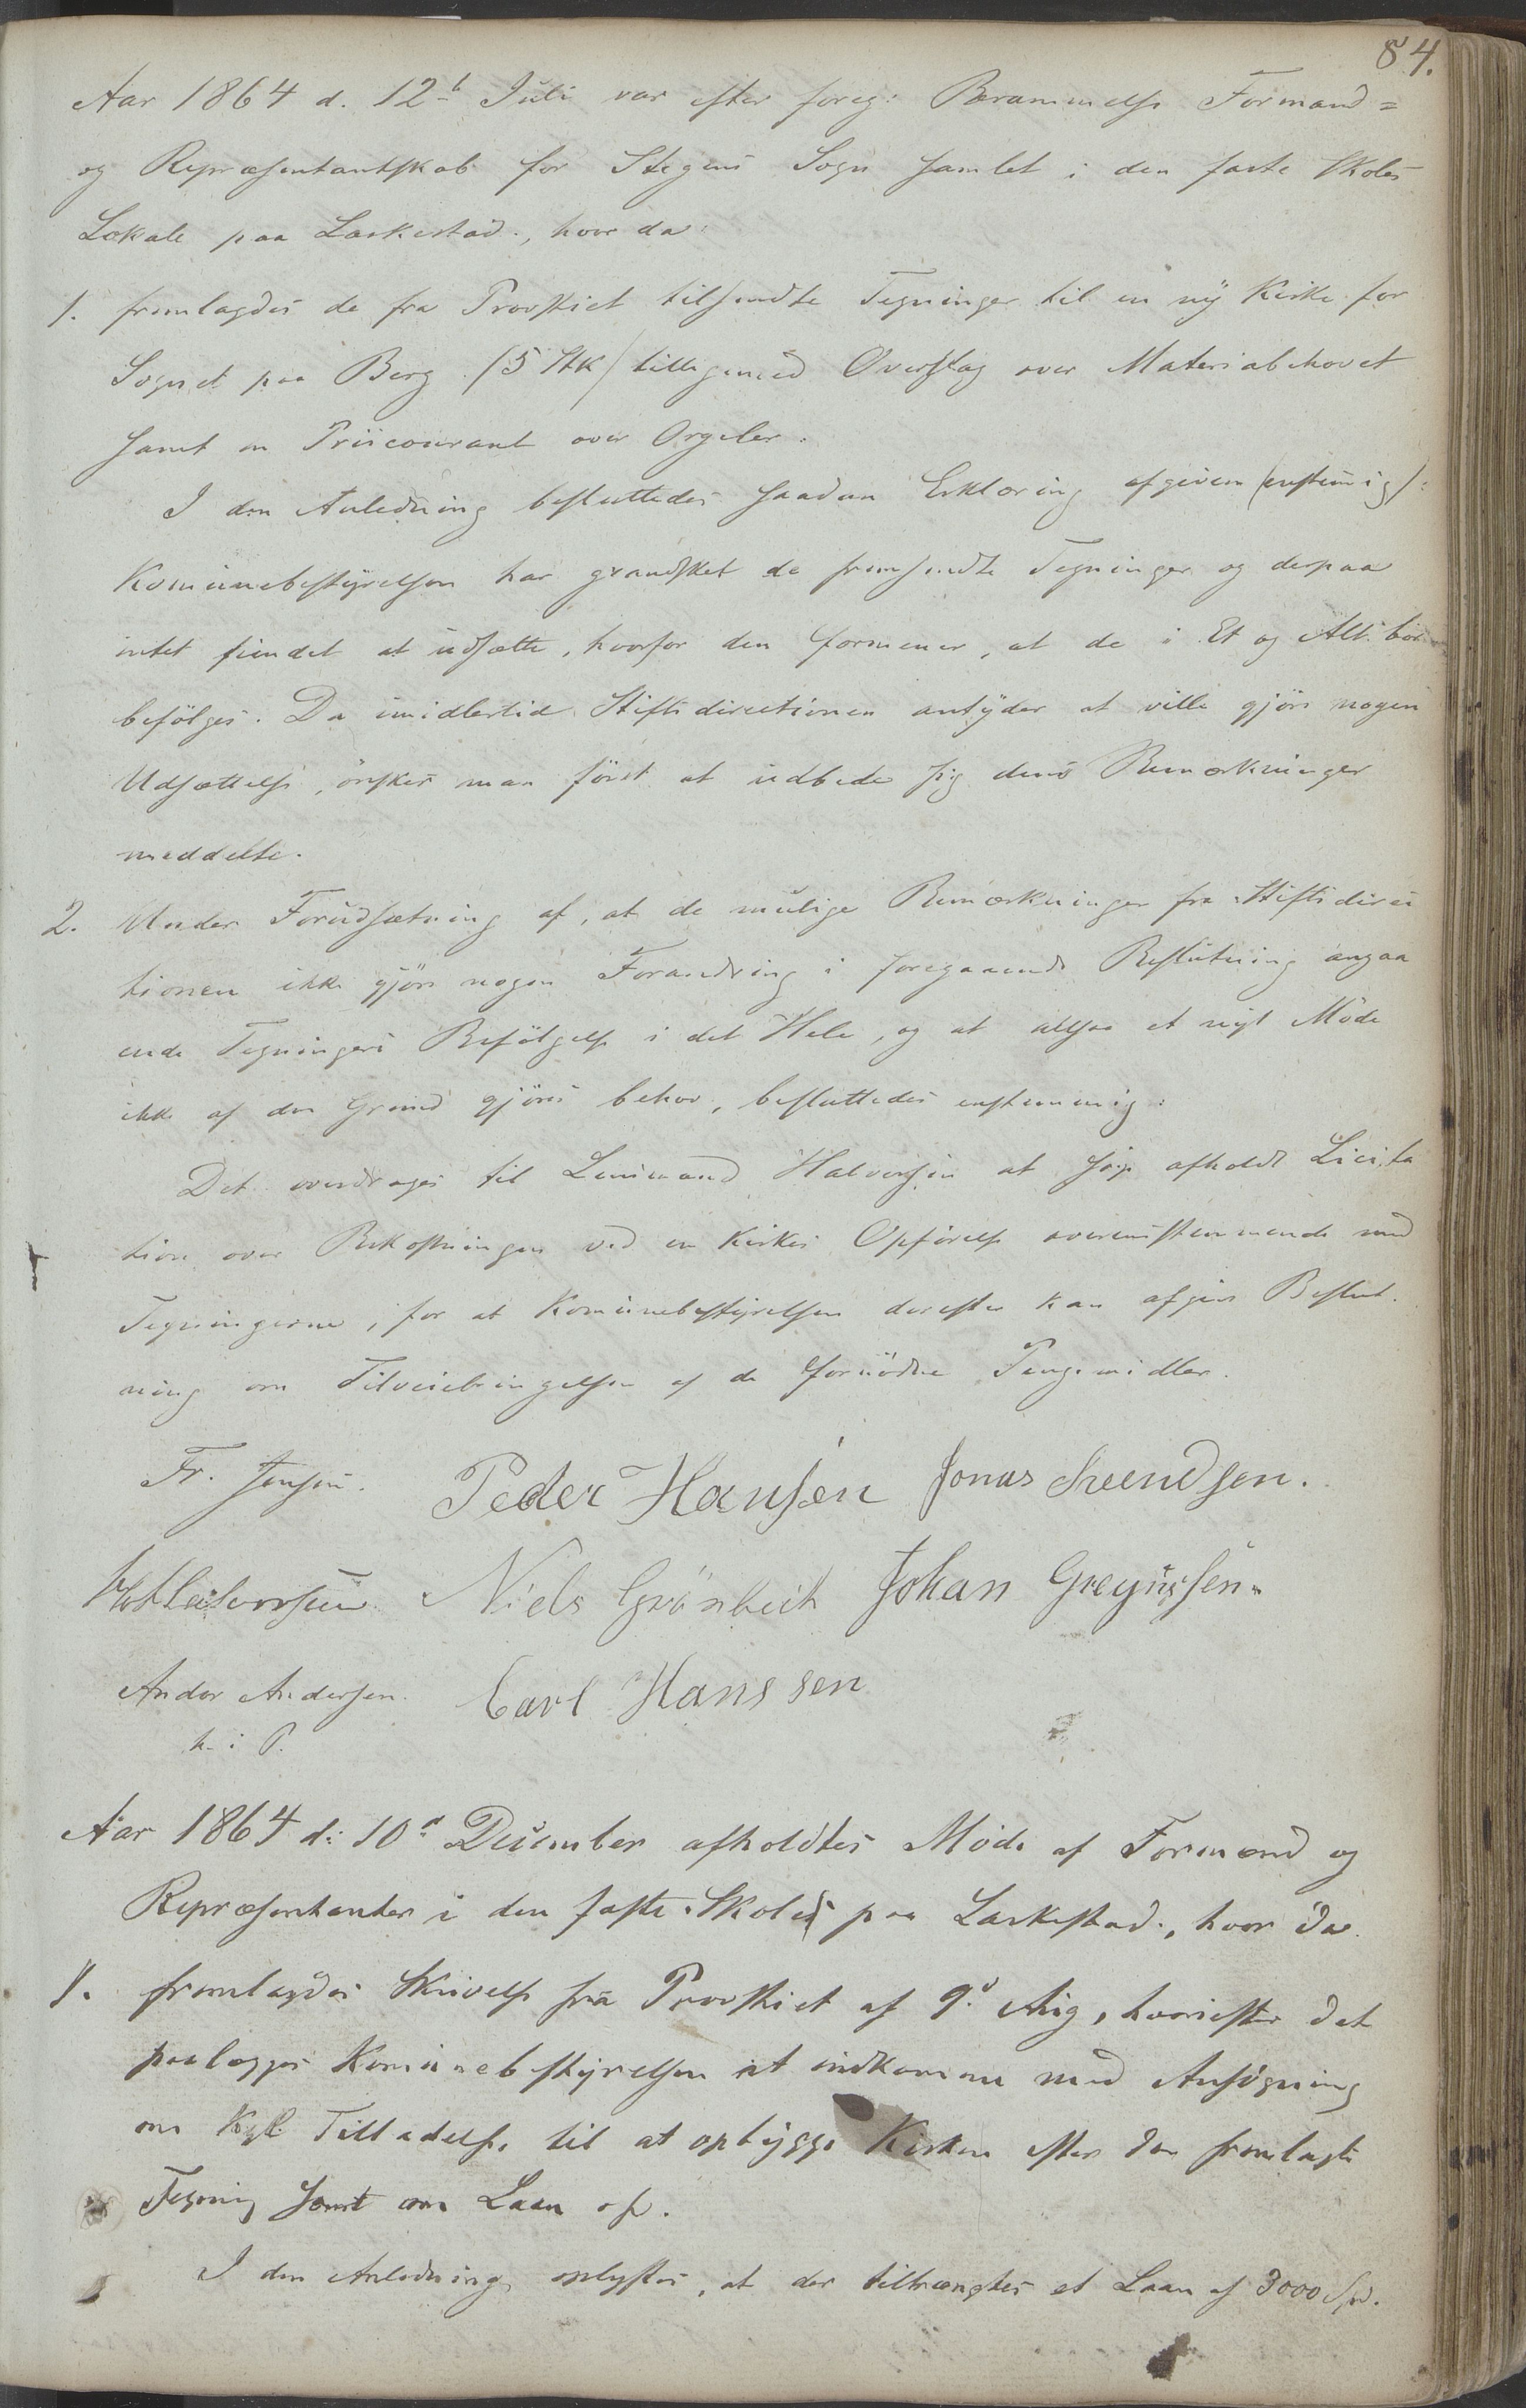 84.
Aar 1864 d. 12t Juli var efter foreg: Berammelse Formand=
og Repræsentantskab for Stegens Sogn samlet i den faste Skoles
Lokale paa Laskestad., hvor da:
1. fremlagdes de fra Provstiet tilsendte Tegninger til en ny Kirke for
Sognet paa Berg (5 Stk) tilligemed Overslag over Materialbehovet
samt en Priiscourant over Orgeler.
I den Anledning besluttedes saadan Erklæring afgiven (enstemig):
Komunebestyrelsen har grandsket de fremsendte Tegninger og derpaa
intet fundet at udsætte, hvorfor den formener, at de i Et og Alt bør
befølges. Da imidlertid Stiftsdirectionen antyder at ville gjøre nogen
Udsættelse, ønsker man først at udbede sig dens Bemærkninger
meddelte.
2. Under Forudsætning af, at de mulige Bemærkninger fra Stiftsdirec
tionen ikke gjøre nogen Forandring i foregaaende Beslutning angaa
ende Tegningers Befølgelse i det Hele, og at altsaa et nyt Møde
ikke af den Grund gjøres behov, besluttedes enstemmig:
Det overdrages til Lensmand Halvorsen at søge afholdt Licita
tion over Bekostningen ved en Kirkes Opførelse overensstemmende med
Tegningerne, for at Komunebestyrelsen derefter kan afgive Beslut-
ning om Tilveiebringelsen af de fornødne Pengemidler.
Fr. Jensen. Peder Hansen Jonas Svendsen.
Halvorsen Niels Grönbeck Johan Gregussen.
Andor Andersen. Carl Hanssen
h. i P.
Aar 1864 d: 10d December afholdtes Møde af Formænd og
Repræsentanter i den faste Skole paa Laskestad., hvor da
1. fremlagdes Skrivelse fra Provstiet af 9d Aug, hvorefter det
paalægges Komunebestyrelsen at indkomme med Ansøgning
om Kgl. Tilladelse til at opbygge Kirken efter den fremlagte
Tegning samt om Laan osv.
I den Anledning oplystes, at der tiltrængtes et Laan af 3000 Spd.